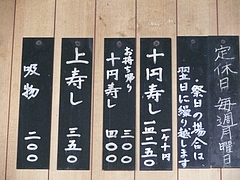 定休日 毎週月曜日
・祭日の場合は
翌日に繰り越します
十円寿し 一ヶ十円
一二一五〇
お持ち帰り
十円寿し 三〇〇
四〇〇
上寿し 三五〇
吸物 二〇〇